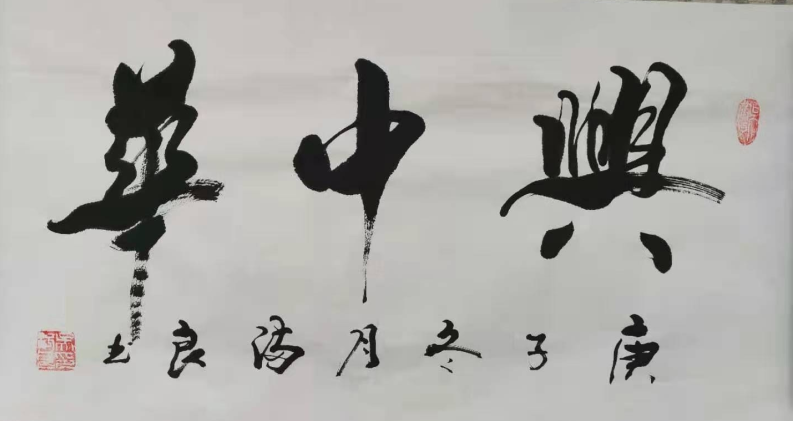 興中華
庚子冬月海良书